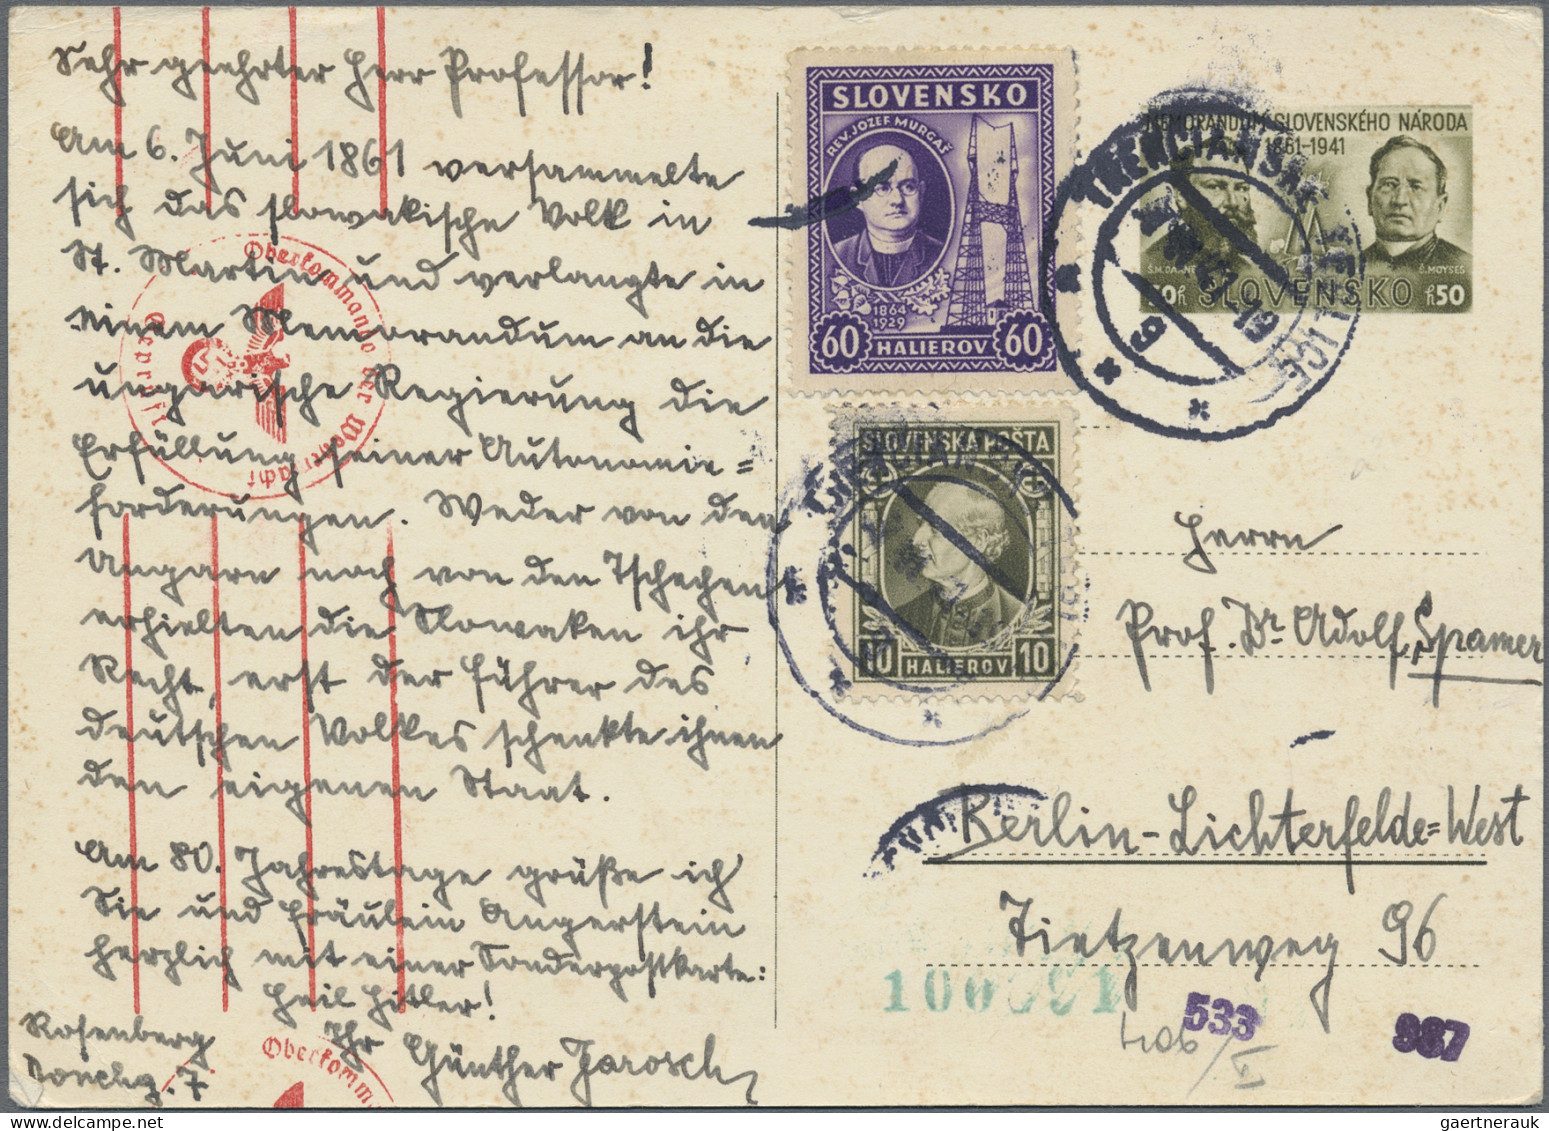 Sehr geehrter Herr Professor!
Am 6. Juni 1861 versammelte
sich das slowakische Volk in
St. Martin und verlangte in
einem Memorandum an die
ungarische Regierung die
Erfüllung seiner Autonomie=
forderungen. Weder von den
Ungarn noch von den Tschechen
erhielten die Slowaken ihr
Recht, erst der Führer des
deutschen Volkes schenkte ihnen
den eigenen Staat.
Am 80. Jahrestage grüße ich
Sie und Fräulein Angerstein
herzlich mit einer Sonderpostkarte:
Heil Hitler!
Ihr Günther Jarosch
Rosenberg
7
Oberkommando der Wehrmacht
Oberkomm
SLOVENSKO
REV. JOZEF MURGAŠ
1864
1929
60 HALIEROV 60
SLOVENSKÁ POŠTA
10 HALIEROV 10
MEMORANDUM SLOVENSKÉHO NÁRODA
1861-1941
Š. MOYSES
50h SLOVENSKO h50
TRENČIANSKE TEPLICE
Herrn
Prof. Dr. Adolf Spamer
Berlin-Lichterfelde=West
Tietzenweg 96
533
987
gaertnerauk@delcampe.net